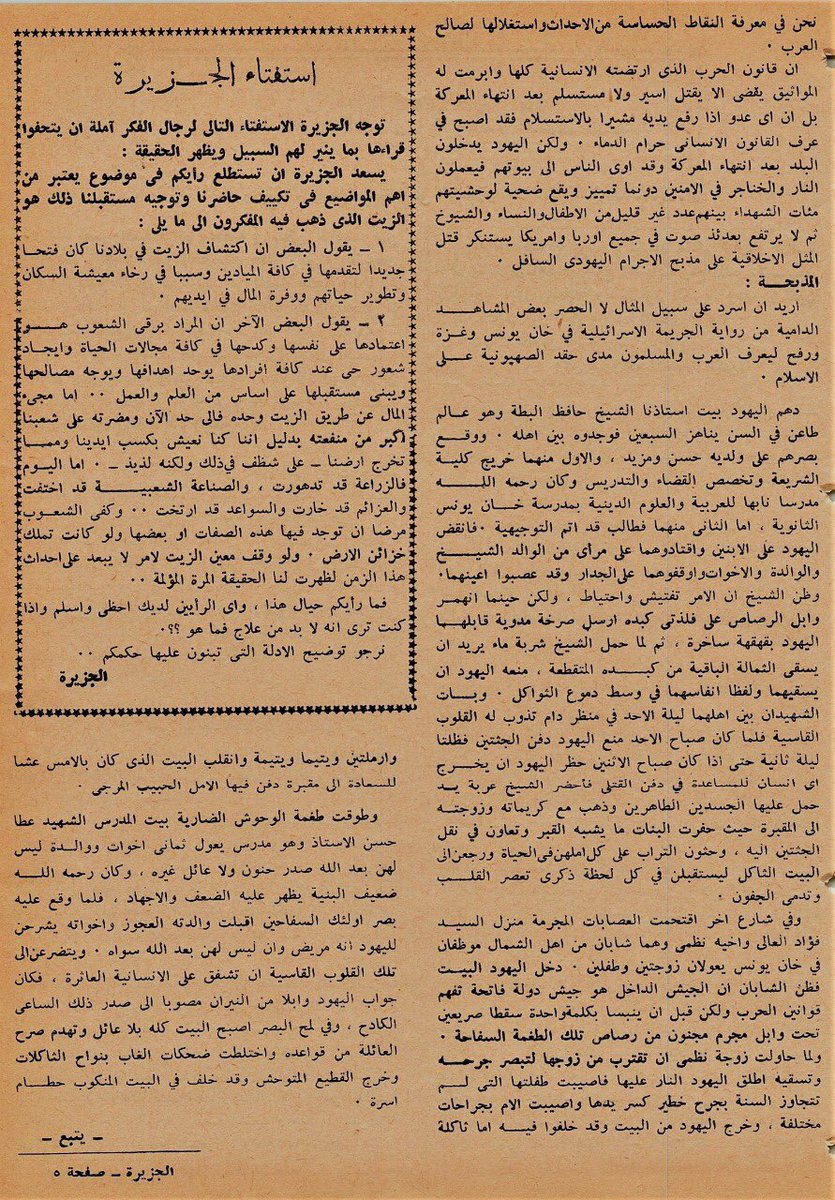 نحن في معرفة النقاط الحساسة من الاحداث واستغلالها لصالح
العرب ٠
ان قانون الحرب الذى ارتضته الانسانية كلها وابرمت له
المواثيق يقضى الا يقتل اسير ولا مستسلم بعد انتهاء المعركة
بل ان اى عدو اذا رفع يديه مشيرا بالاستسلام فقد اصبح في
عرف القانون الانسانى حرام الدماء ٠ ولكن اليهود يدخلون
البلد بعد انتهاء المعركة وقد اوى الناس الى بيوتهم فيعملون
النار والخناجر في الامنين دونما تمييز ويقع ضحية لوحشيتهم
مئات الشهداء بينهم عدد غير قليل من الاطفال والنساء والشيوخ
ثم لا يرتفع بعدئذ صوت في جميع اوربا وامريكا يستنكر قتل
المثل الاخلاقية على مذبح الاجرام اليهودى السافل ٠
المذبحـــة :
اريد ان اسرد على سبيل المثال لا الحصر بعض المشاهـــد
الدامية من رواية الجريمة الاسرائيلية في خان يونس وغـزة
ورفح ليعرف العرب والمسلمون مدى حقد الصهيونية عـــلى
الاسلام ٠
دهم اليهود بيت استاذنا الشيخ حافظ البطة وهو عـالم
طاعن في السن يناهز السبعين فوجدوه بين اهله ٠ ووقـــع
بصرهم على ولديه حسن ومزيد ، والاول منهما خريج كلية
الشريعة وتخصص القضاء والتدريس وكان رحمه اللـــه
مدرسا نابها للعربية والعلوم الدينية بمدرسة خـــان يونس
الثانوية ، اما الثانى منهما فطالب قد اتم التوجيهية ٠ فانقض
اليهود على الابنين واقتادوهما على مرأى من الوالد الشيـــخ
والوالدة والاخوات واوقفوهما على الجدار وقد عصبوا اعينهما٠
وظن الشيخ ان الامر تفتيش واحتياط ، ولكن حينما انهمـر
وابل الرصاص على فلذتى كبده ارسل صرخة مدوية قابلهـا
اليهود بقهقهة ساخرة ، ثم لما حمل الشيخ شربة ماء يريد ان
يسقى الثمالة الباقية من كبـــده المتقطعة ، منعه اليهود ان
يسقيهما ولفظا انفاسهما في وسط دموع الثواكل ٠ وبـــات
الشهيدان بين اهلهما ليلة الاحد في منظر دام تذوب له القلوب
القاسية فلما كان صباح الاحد منع اليهود دفن الجثتين فظلتا
ليلة ثانية حتى اذا كان صباح الاثنين حظر اليهود ان يخـــرج
اى انسان للمساعدة في دفن القتلى فأحضر الشيخ عربة يــد
حمل عليها الجسدين الطاهرين وذهب مع كريماته وزوجتـه
الى المقبرة حيث حفرت البنات ما يشبه القبر وتعاون في نقل
الجثتين اليه ، وحثون التراب على كل املهن فى الحياة ورجعن الى
البيت الثاكل ليستقبلن في كل لحظة ذكرى تعصر القلـــب
وتدمى الجفون ٠
وفي شارع اخر اقتحمت العصابات المجرمة منزل السيــد
فؤاد العالى واخيه نظمى وهما شابان من اهل الشمال موظفان
في خان يونس يعولان زوجتين وطفلين ٠ دخل اليهود البيــت
فظن الشابان ان الجيش الداخل هو جيش دولة فاتحة تفهم
قوانين الحرب ولكن قبل ان ينبسا بكلمة واحدة سقطا صريعين
تحت وابل مجرم مجنون من رصاص تلك الطغمة السفاحة ٠
ولما حاولت زوجة نظمى ان تقترب من زوجها لتبصر جرحـــه
وتسقيه اطلق اليهود النار عليها فاصيبت طفلتها التى لـــم
تتجاوز السنة بجرح خطير كسر يدها واصيبت الام بجراحات
مختلفة ، وخرج اليهود من البيت وقد خلفوا فيـــه اما ثاكلة
استفتاء الجــزيرة
توجه الجزيرة الاستفتاء التالى لرجال الفكر آملة ان يتحفوا
قراءها بما ينير لهم السبيل ويظهر الحقيقة :
يسعد الجزيرة ان تستطلع رأيكم فى موضوع يعتبر من
اهم المواضيع فى تكييف حاضرنا وتوجيه مستقبلنا ذلك هو
الزيت الذى ذهب فيه المفكرون الى ما يلى :
١ ــ يقول البعض ان اكتشاف الزيت في بلادنا كان فتحـا
جديدا لتقدمها في كافة الميادين وسببا في رخاء معيشة السكان
وتطوير حياتهم ووفرة المال في ايديهم ٠
٢ ــ يقول البعض الآخر ان المراد برقى الشعوب هـــو
اعتمادها على نفسها وكدحها في كافة مجالات الحياة وايجـاد
شعور حى عند كافة افرادها يوحد اهدافها ويوجه مصالحها
ويبنى مستقبلها على اساس من العلم والعمل ٠٠ اما مجىء
المال عن طريق الزيت وحده فالى حد الآن ومضرته على شعبنا
اكبر من منفعته بدليل اننا كنا نعيش بكسب ايدينا وممـــا
تخرج ارضنا ــ على شظف في ذلك ولكنه لذيذ ــ ٠ اما اليوم
فالزراعة قد تدهورت ، والصناعة الشعبيـــة قد اختفت
والعزائم قد خارت والسواعد قد ارتخت ٠٠ وكفى الشعـوب
مرضا ان توجد فيها هذه الصفات او بعضها ولو كانت تملك
خزائن الارض ٠ ولو وقف معين الزيت لامر لا يبعد على احداث
هذا الزمن لظهرت لنا الحقيقة المرة المؤلمة ٠٠
فما رأيكم حيال هذا ، واى الرأيين لديك احظى واسلم واذا
كنت ترى انه لا بد من علاج فما هو ؟؟٠
نرجو توضيح الادلة التى تبنون عليها حكمكم ٠٠
الجزيرة
وارملتين ويتيما ويتيمة وانقلب البيت الذى كان بالامس عشا
للسعادة الى مقبرة دفن فيها الامل الحبيب المرجى ٠
وطوقت طغمة الوحوش الضارية بيت المدرس الشهيد عطا
حسن الاستاذ وهو مدرس يعول ثمانى اخوات ووالـدة ليس
لهن بعد الله صدر حنون ولا عائل غيره ، وكان رحمه اللـــه
ضعيف البنية يظهر عليه الضعف والاجهاد ، فلما وقع عليه
بصر اولئك السفاحين اقبلت والدته العجوز واخواته يشرحن
لليهود انه مريض وان ليس لهن بعد الله سواه ٠ ويتضرعن الى
تلك القلوب القاسية ان تشفق على الانسانية العاثرة ، فكان
جواب اليهود وابلا من النيران مصوبا الى صدر ذلك الساعى
الكادح ، وفي لمح البصر اصبح البيت كله بلا عائل وتهدم صرح
العائلة من قواعده واختلطت ضحكات الغاب بنواح الثاكلات
وخرج القطيع المتوحش وقد خلف في البيت المنكوب حطـــام
اسرة ٠
ــ يتبع ــ
الجزيرة ــ صفحة ٥